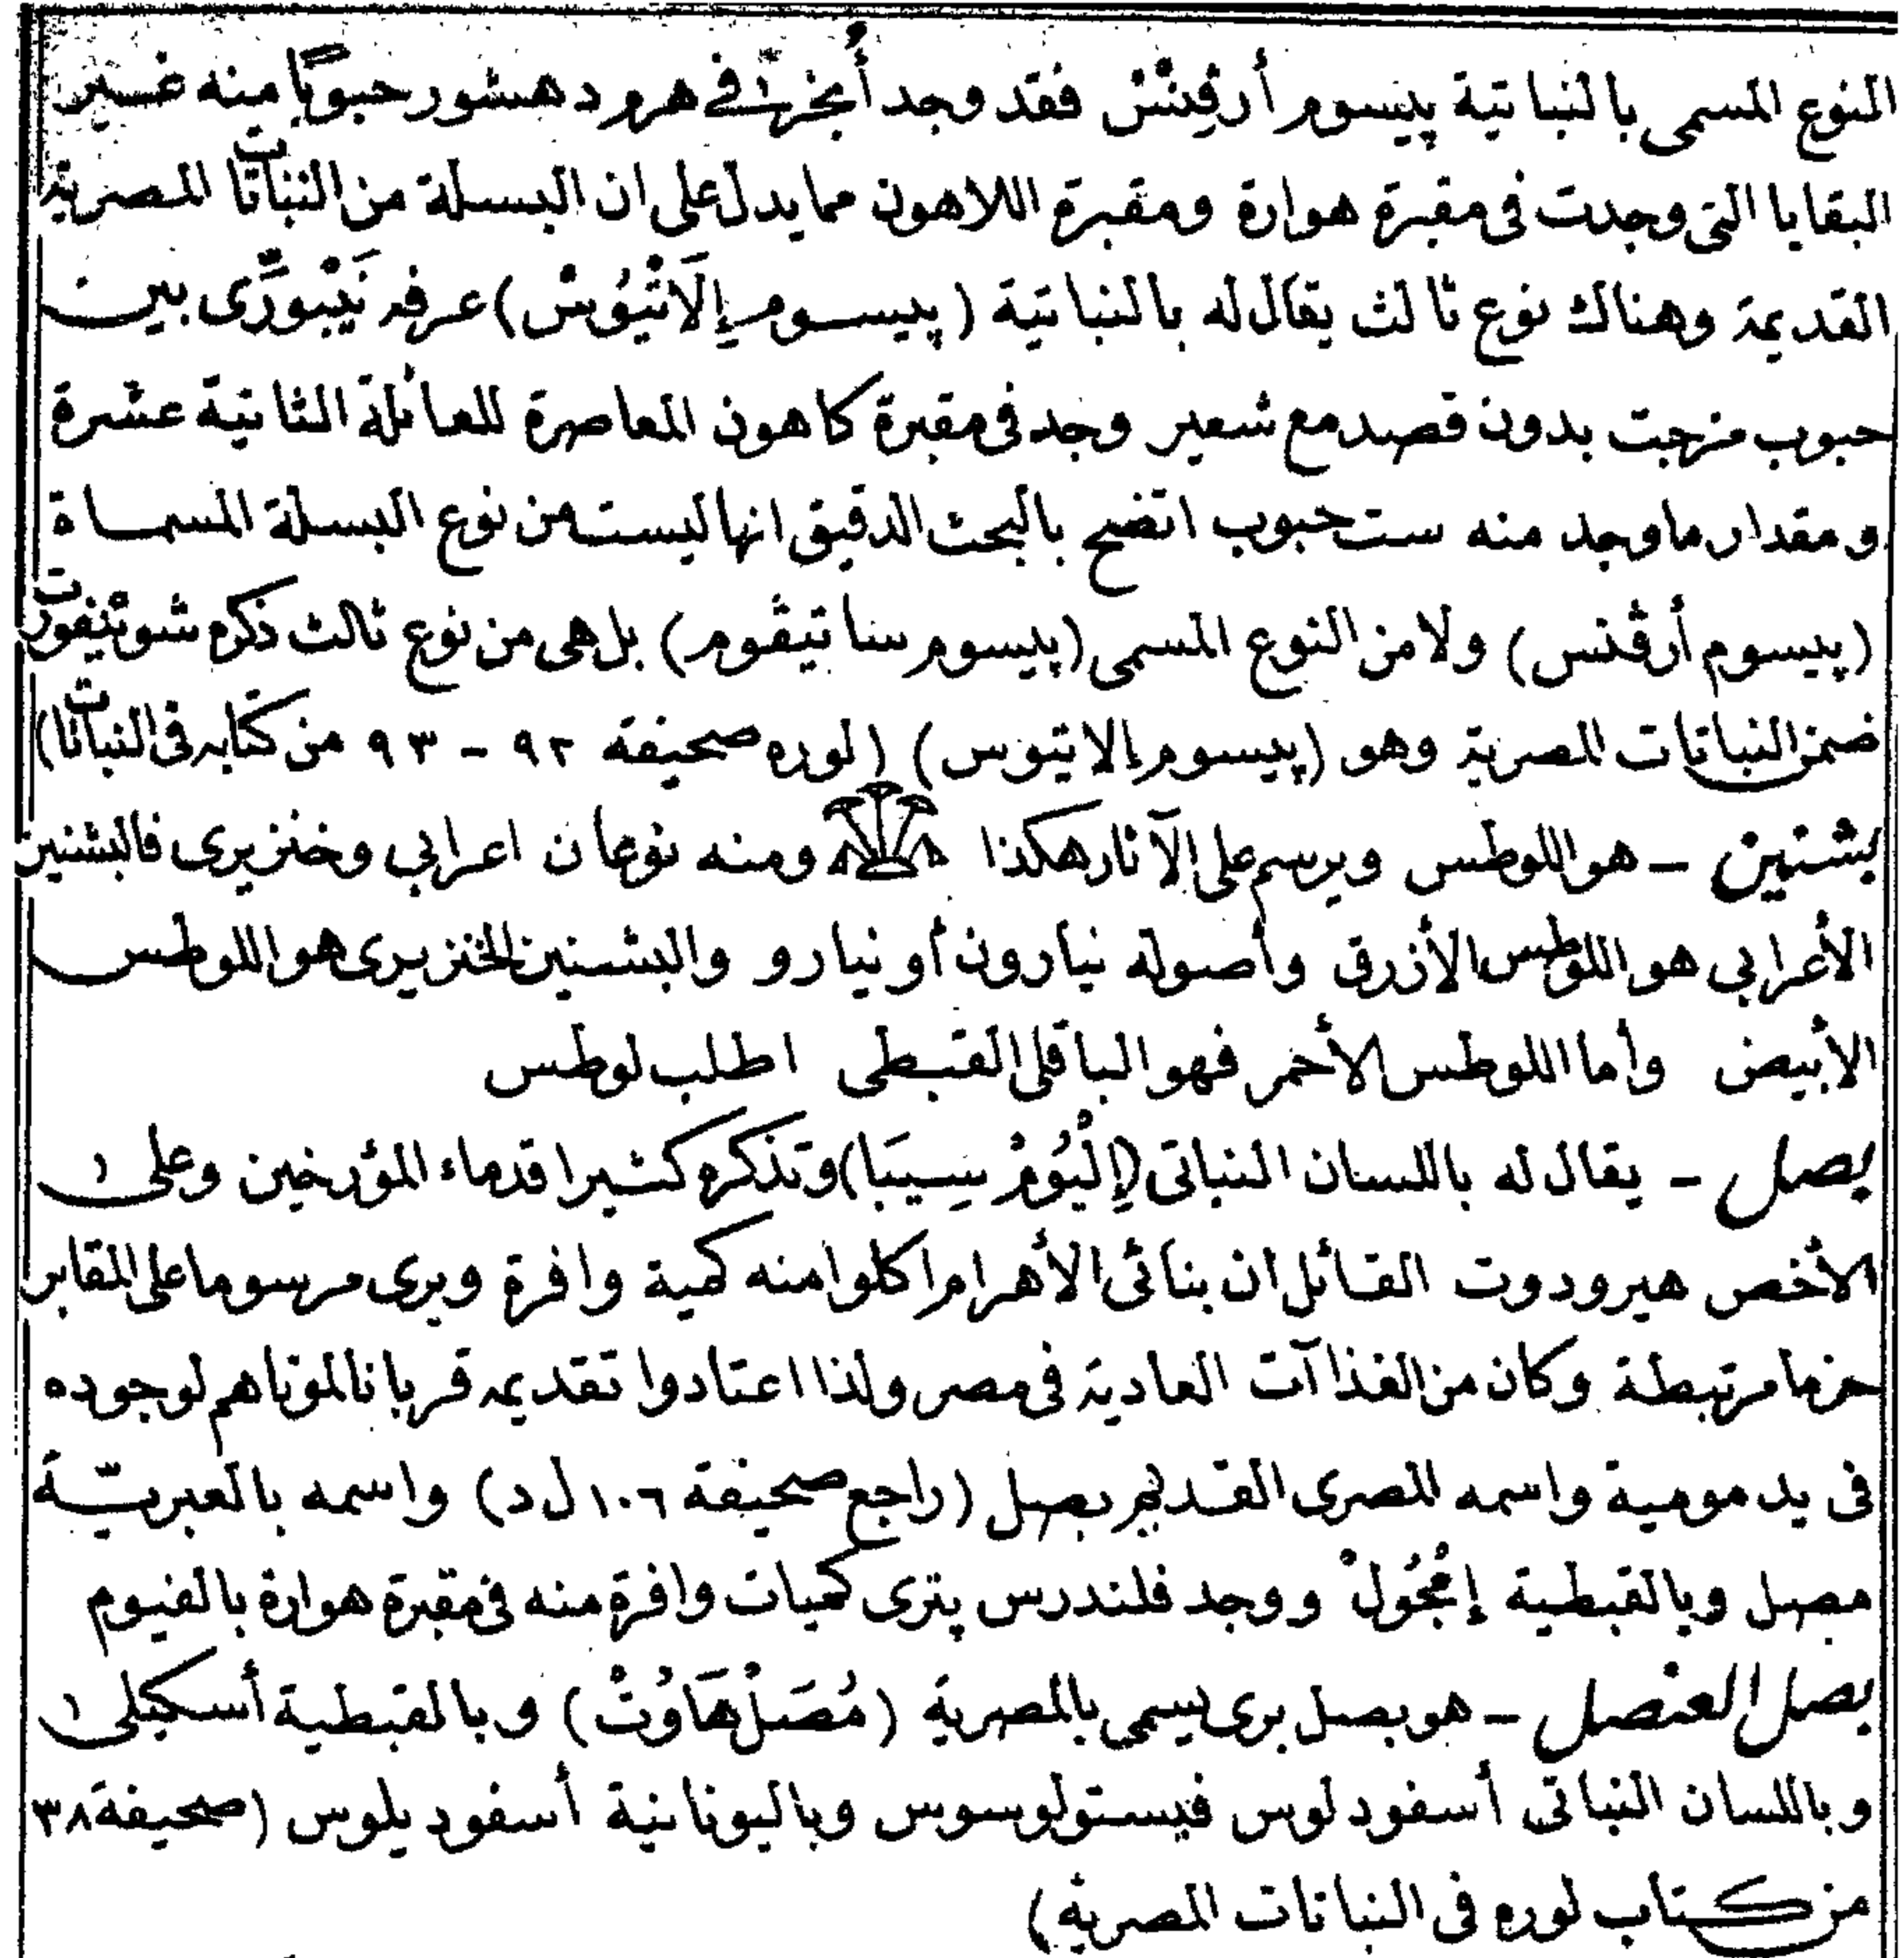 النوع المسمى بالنباتية پيسوم أرڤِنْسْ فقد وجد أُنجِرْ في هرم دهشور حبوبًا منه غير
البقايا التى وجدت فى مقبرة هوارة ومقبرة اللاهون مما يدل على ان البسلة من النباتات المصرية
القديمة وهناك نوع ثالث يقال له بالنباتية (پيسوم إلَاتْيُوسْ) عرفه نَيْبُورِّى بين
حبوب مزجت بدون قصد مع شعير وجد فى مقبرة كاهون المعاصرة للعائلة الثانية عشرة
ومقدار ما وجد منه ست حبوب اتضح بالبحث الدقيق انها ليست من نوع البسلة المسماة
(پيسوم أرڤنس) ولا من النوع المسمى (پيسوم ساتيڤوم) بل هى من نوع ثالث ذكره شوينفورت
ضمن النباتات المصرية وهو (پيسوم إلاتيوس) (لوره صحيفة ٩٢ - ٩٣ من كتابه فى النباتات)
بشنين - هو اللوطس ويرسم على الآثار هكذا ومنه نوعان اعرابى وخنزيرى فالبشنين
الأعرابى هو اللوطس الأزرق وأصوله نيارون أو نيارو والبشنين الخنزيرى هو اللوطس
الأبيض وأما اللوطس الأحمر فهو الباقلى القبطى اطلب لوطس
بصل - يقال له باللسان النباتى (إلْيُومْ سِيبَا) وتذكره كثيرا قدماء المؤرخين وعلى
الأخص هيرودوت القائل ان بنائى الأهرام اكلوا منه كمية وافرة ويرى مرسوما على المقابر
حزما مرتبطة وكان من الغذاآت العادية فى مصر ولذا اعتادوا تقديمه قربانا لموتاهم لوجوده
فى يد مومية واسمه المصرى القديم بصل (راجع صحيفة ١٠٦ ل د) واسمه بالعبريّة
مصل وبالقبطية إمْجُولْ ووجد فلندرس پترى كميات وافرة منه فى مقبرة هوارة بالفيوم
بصل العنصل - هو بصل برى يسمى بالمصرية (مُصَلْ هَاوُتْ) وبالقبطية أسكيلى
وباللسان النباتى أسفودلوس فيستولوسوس وباليونانية أسفوديلوس (صحيفة ٣٨
من كتاب لوره فى النباتات المصرية)